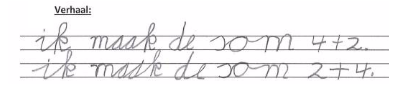 Verhaal:
ik maak de som 4+2.
ik maak de som 2+4.